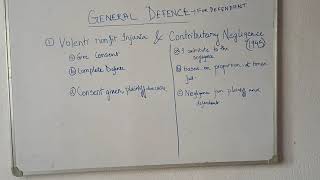 GENERAL DEFENCE - FOR DEFENDANT
① Volenti nonfit Injuria & Contributory Negligence (1945)
① Give Consent
② Complete Defence
③ Consent given plaintiff
① I contribute to the negligence
② based on proportion
③ Negligence from plaintiff and defendant